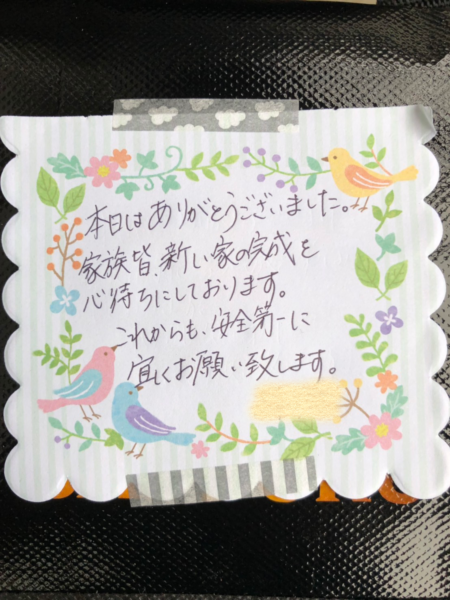 本日はありがとうございました。
家族皆、新しい家の完成を
心待ちにしております。
これからも、安全第一に
宜しくお願い致します。